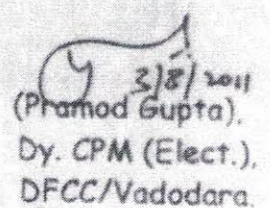 3/8/2011
(Pramod Gupta),
Dy. CPM (Elect.),
DFCC/Vadodara.